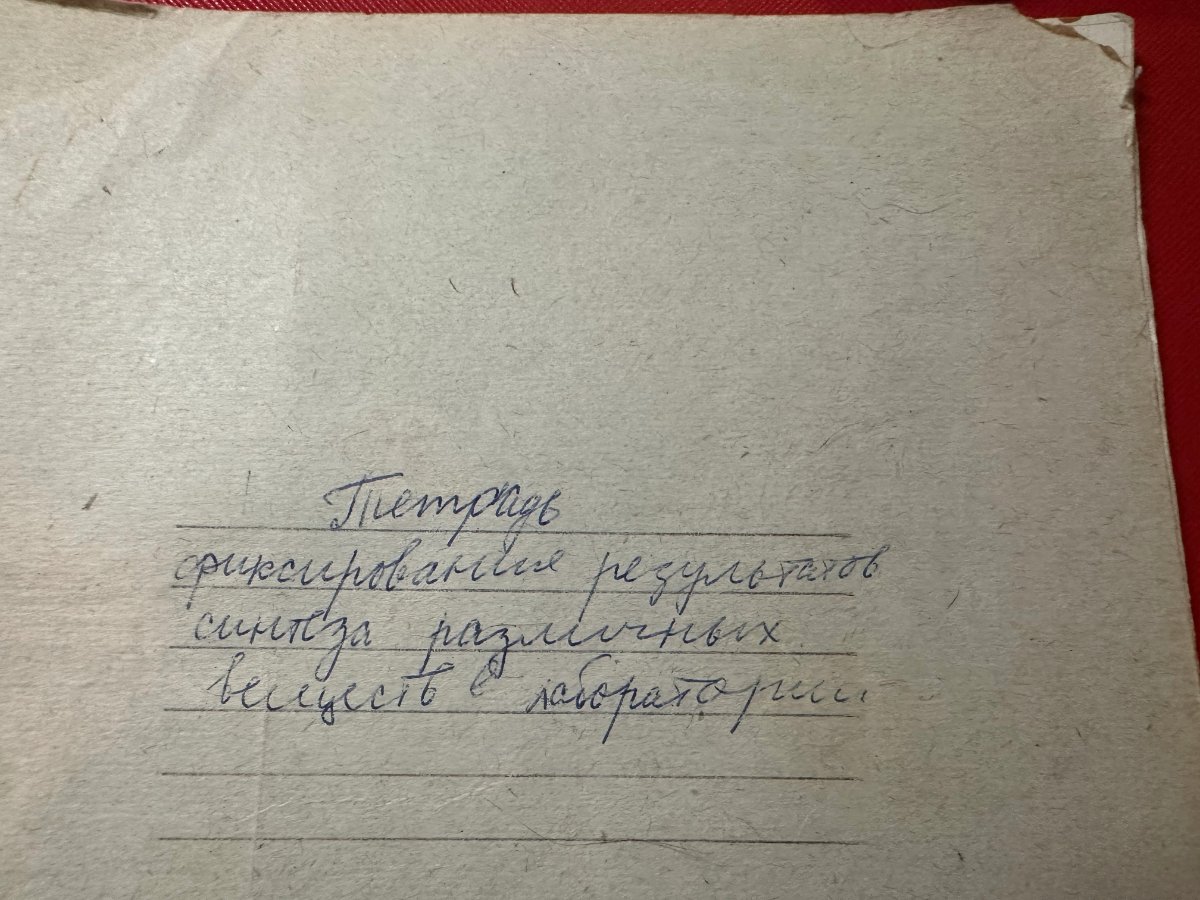 Тетрадь
фиксирования результатов
синтеза различных
веществ в лаборатории.